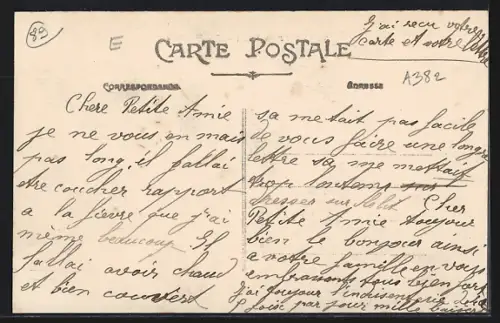 89
E
j'ai recu votre
carte et votre lettre
CARTE POSTALE
A382
CORRESPONDANCE
ADRESSE
Chere Petite Amie
je ne vous en mais
pas long, il fallai
etre coucher rapport
a la fievre que j'ai
même beaucoup Il
fallai avoir chaud
et bien couvert
sa me tait pas facile
de vous faire une longue
lettre sa me mettait
trop lontemp
sur lelit Cher
Petite Amie toujour
bien le bonjour ainsi
a votre famille en vous
embrassant tous bien fort
j'ai toujour
fois par jour mille baiser